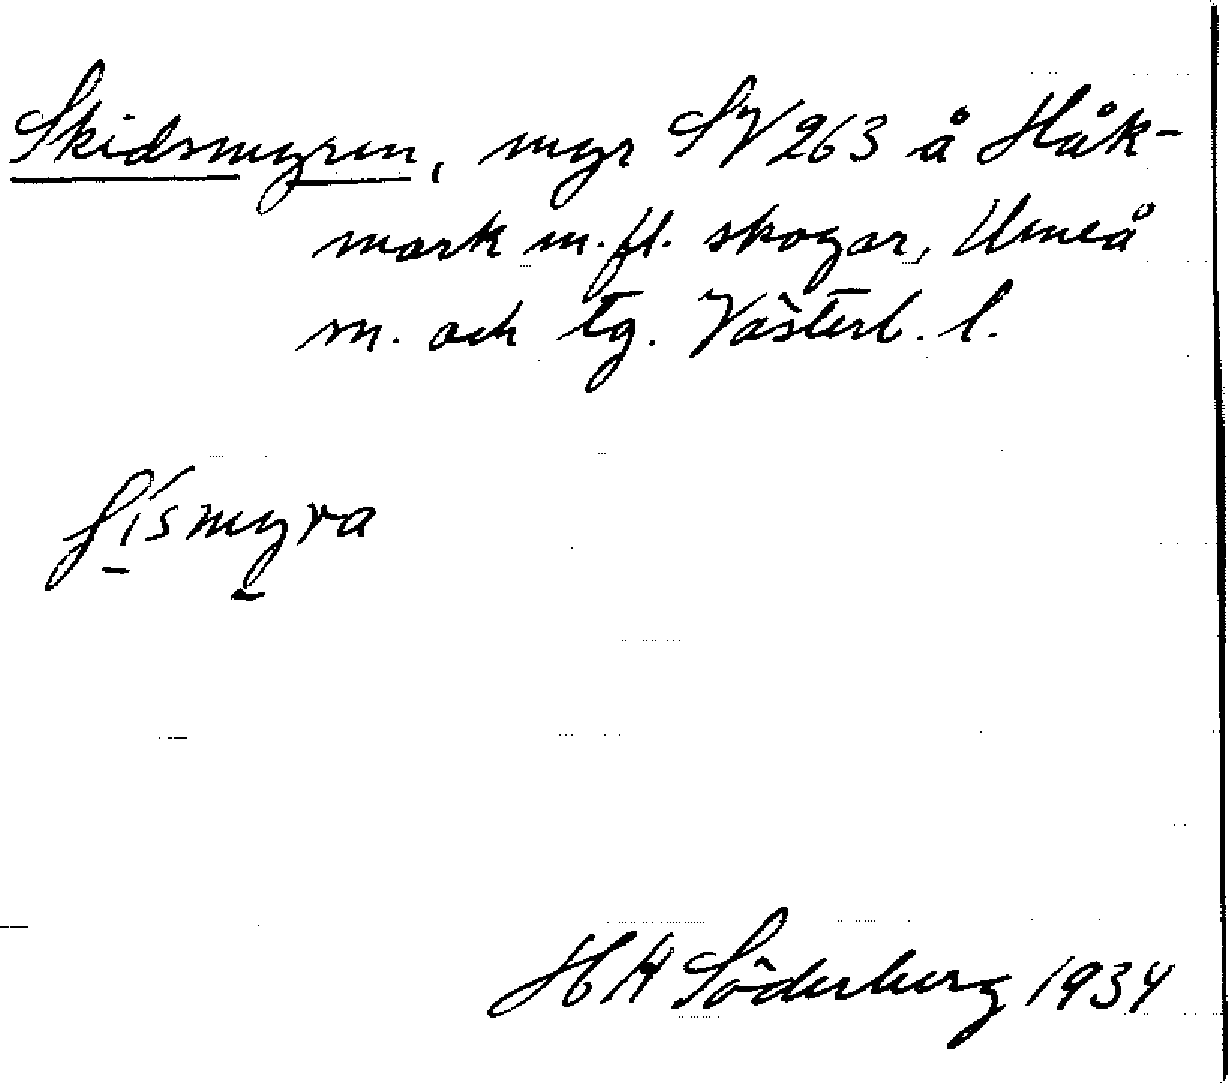 Skidsmyren, myr SV 263 å Håk-
mark m.fl. skogar, Umeå
m. och tg. Västerb. l.
ʃismyra
H H Söderberg 1934